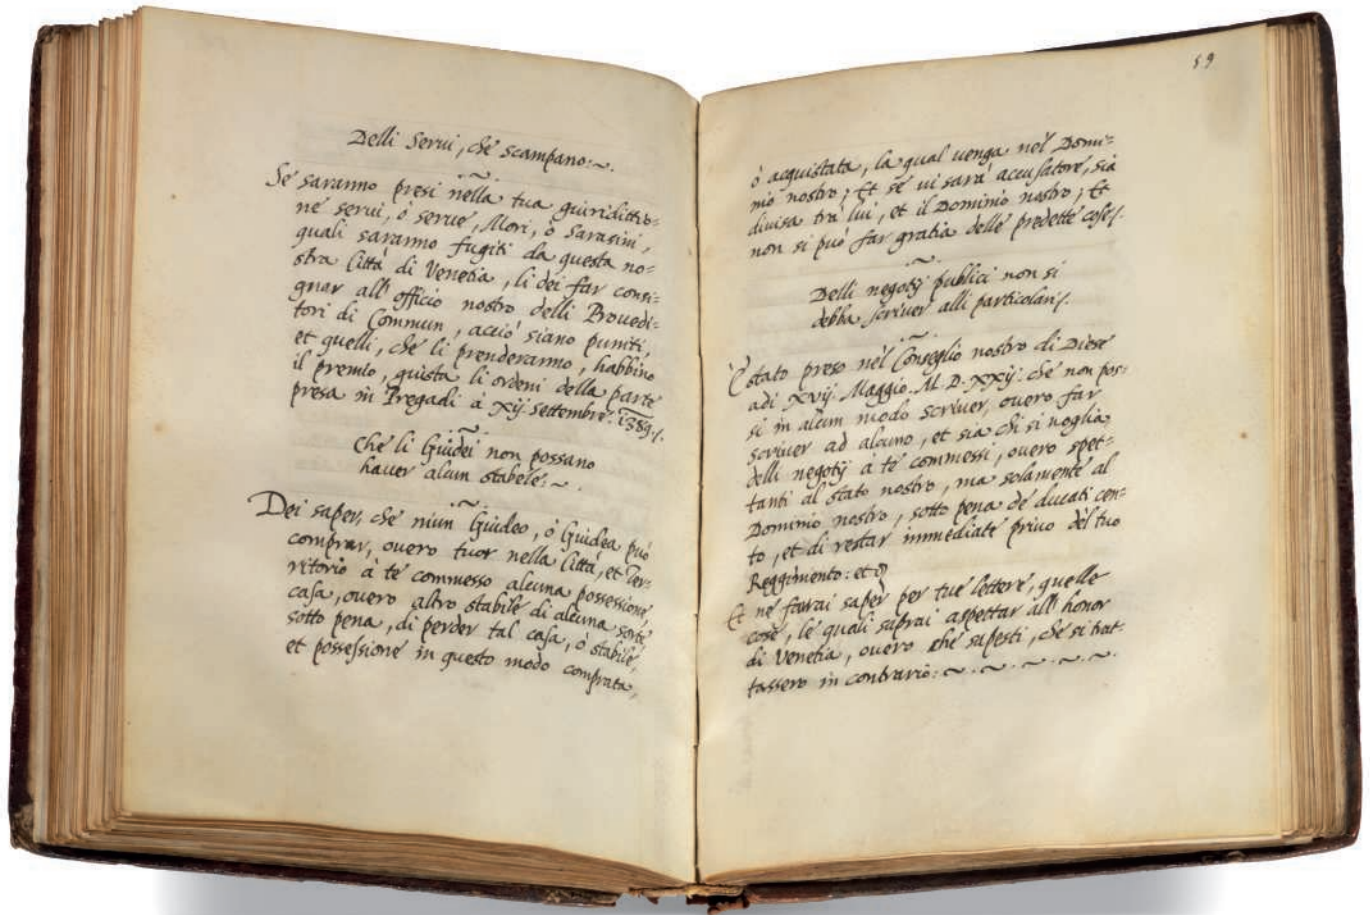 Delli Serui, che scampano:~.
Se saranno presi nella tua giuriditio=
ne serui, ò serue, Mori, ò Sarasini,
quali saranno fugiti da questa no=
stra Città di Venetia, li dei far consi=
gnar all' officio nostro delli Prouedi=
tori di Commun, acciò siano puniti,
et quelli, che li prenderanno, habbino
il premio, giusta li ordeni della parte
presa in Pregadi à xij. Settembre. 1389./.
Che li Giudei non possano
hauer alcun stabele:~.
Dei saper, che niun Giudeo, ò Giudea può
comprar, ouero tuor nella Città, et Ter=
ritorio à te commesso alcuna possessione,
casa, ouero altro stabile di alcuna sorte
sotto pena, di perder tal casa, ò stabile,
et possessione in questo modo comprata,
59
ò acquistata, la qual uenga nel Domi=
nio nostro; Et se ui sarà accusatore, sia
diuisa trà lui, et il Dominio nostro; Et
non si può far gratia delle predette cose/.
Delli negotij publici non si
debba scriuer alli particolari/.
È stato preso nel Conseglio nostro di Diese
adi xvij. Maggio. M.D.xxij. che non pos=
si in alcun modo scriuer, ouero far
scriuer ad alcuno, et sia chi si uoglia,
delli negotij à te commessi, ouero spet=
tanti al stato nostro, ma solamente al
Dominio nostro, sotto pena de ducati cen=
to, et di restar immediate priuo del tuo
Reggimento: et
Et ne farai saper per tue lettere, quelle
cose, le quali saprai aspettar all' honor
di Venetia, ouero che sapesti, che si trat=
tassero in contrario:~.~.~.~.~.